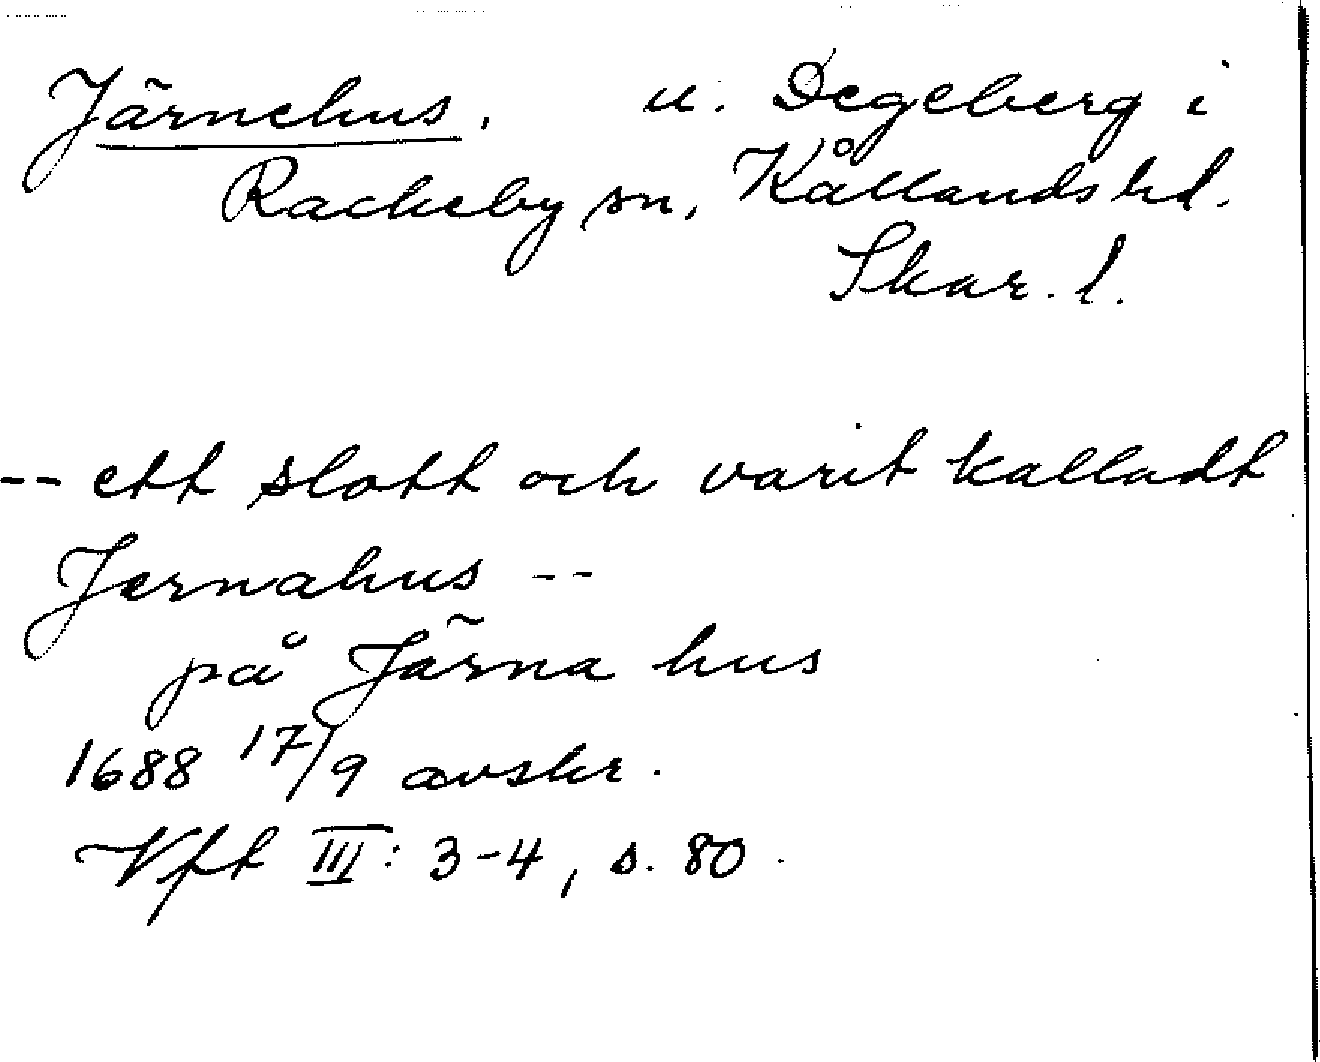 Järnehus. u. Degeberg i
Rackeby sn, Kållands hd.
Skar. l.
-- ett slott och varit kalladt
Jernahus --
på Järna hus
1688 17/9 avskr.
Vft III: 3-4, s. 80.